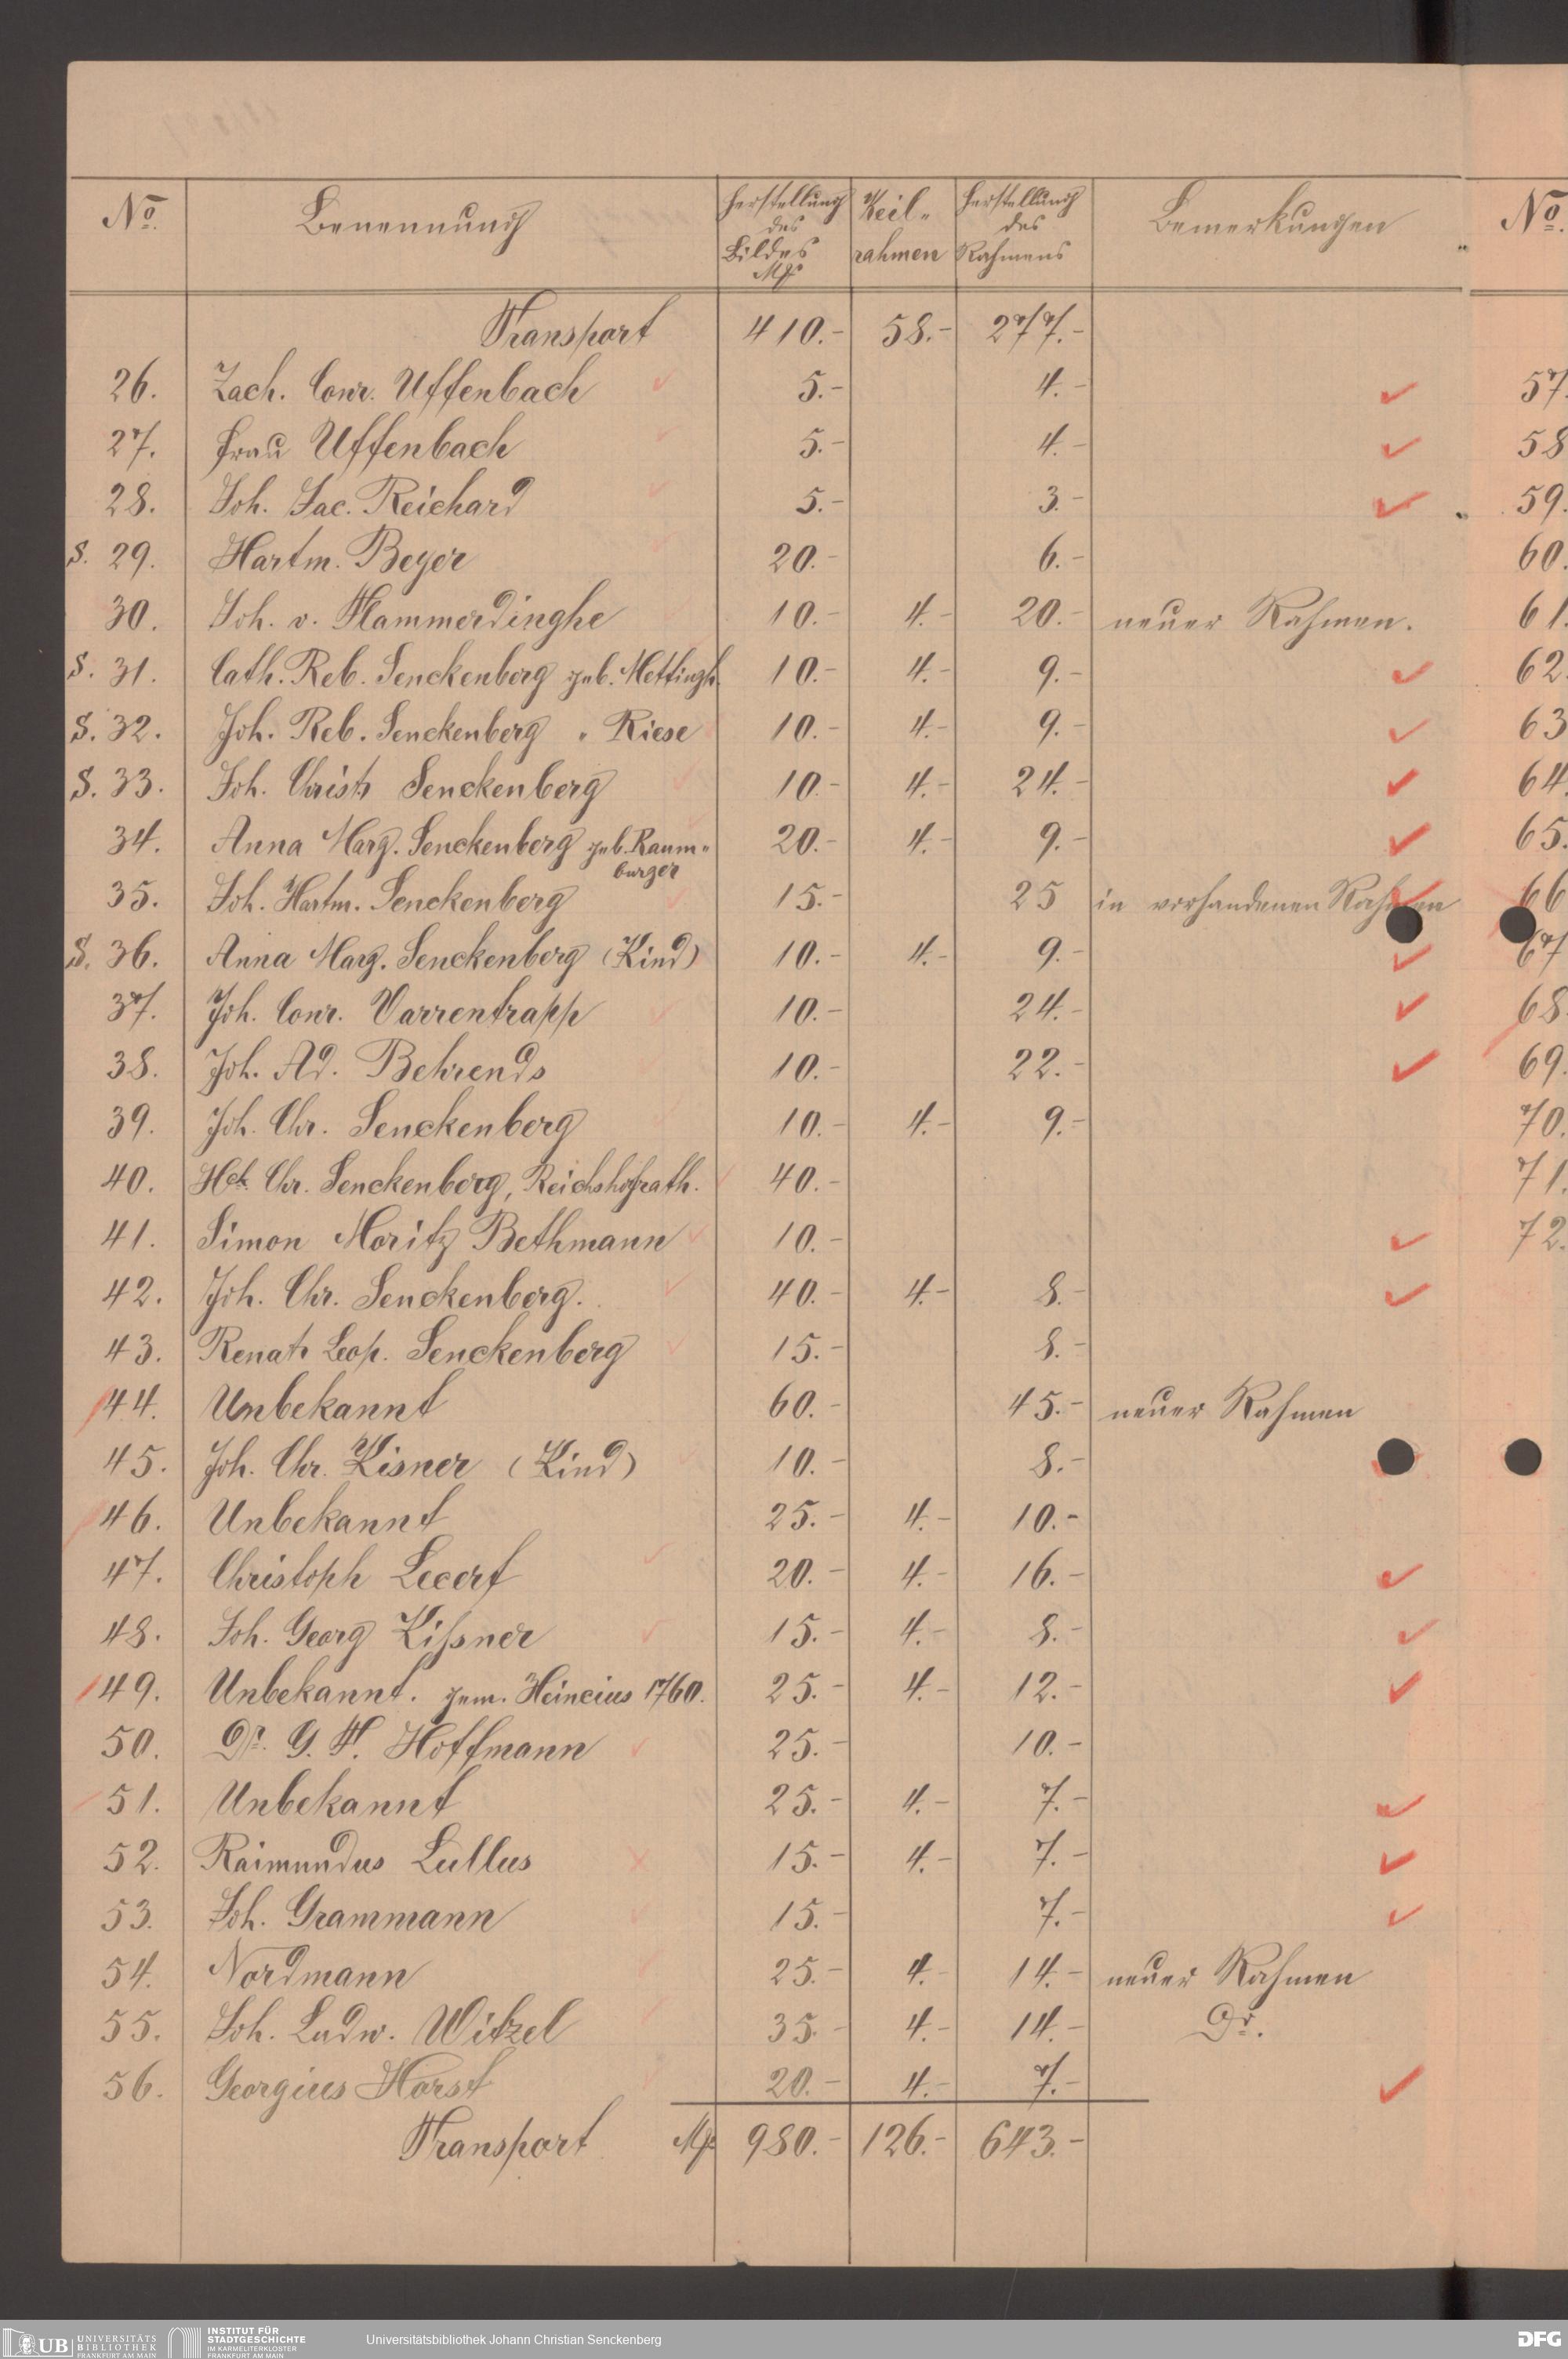 No. Benennung Herstellung des Bildes Mk Keil-rahmen Herstellung des Rahmens Bemerkungen No.
Transport 410.- 58.- 277.-
26. Zach. Conr. Uffenbach 5.- 4.- 57.
27. Frau Uffenbach 5.- 4.- 58
28. Joh. Jac. Reichard 5.- 3.- 59.
S. 29. Hartm. Beyer 20.- 6.- 60.
30. Joh. v. Hammerdinghe 10.- 4.- 20.- neuer Rahmen. 61.
S. 31. Cath. Reb. Senckenberg geb. Mettingh. 10.- 4.- 9.- 62.
S. 32. Joh. Reb. Senckenberg " Riese 10.- 4.- 9.- 63
S. 33. Joh. Christ. Senckenberg 10.- 4.- 24.- 64.
34. Anna Marg. Senckenberg geb. Raum- 20.- 4.- 9.- 65.
burger
35. Joh. Hartm. Senckenberg 15.- 25 in vorhandenen Rahmen 66
S. 36. Anna Marg. Senckenberg (Kind) 10.- 4.- 9.- 67
37. Joh. Conr. Varrentrapp 10.- 24.- 68.
38. Joh. Ad. Behrends 10.- 22.- 69.
39. Joh. Chr. Senckenberg 10.- 4.- 9.- 70.
40. Hch. Chr. Senckenberg, Reichshofrath. 40.- 71.
41. Simon Moritz Bethmann 10.- 72.
42. Joh. Chr. Senckenberg. 40.- 4.- 8.-
43. Renat. Leop. Senckenberg 15.- 8.-
44. Unbekannt 60.- 45.- neuer Rahmen
45. Joh. Chr. Kisner (Kind) 10.- 8.-
46. Unbekannt 25.- 4.- 10.-
47. Christoph Lecerf 20.- 4.- 16.-
48. Joh. Georg Kißner 15.- 4.- 8.-
49. Unbekannt. gem. Heincius 1760. 25.- 4.- 12.-
50. Dr. G. F. Hoffmann 25.- 10.-
51. Unbekannt 25.- 4.- 7.-
52. Raimundus Lullus 15.- 4.- 7.-
53. Joh. Grammann 15.- 7.-
54. Nordmann 25.- 4.- 14.- neuer Rahmen
55. Joh. Ludw. Witzel 35.- 4.- 14.- Do.
56. Georgius Horst 20.- 4.- 7.-
Transport Mk 980.- 126.- 643.-
UB UNIVERSITÄTS BIBLIOTHEK FRANKFURT AM MAIN
INSTITUT FÜR STADTGESCHICHTE IM KARMELITERKLOSTER FRANKFURT AM MAIN
Universitätsbibliothek Johann Christian Senckenberg
DFG